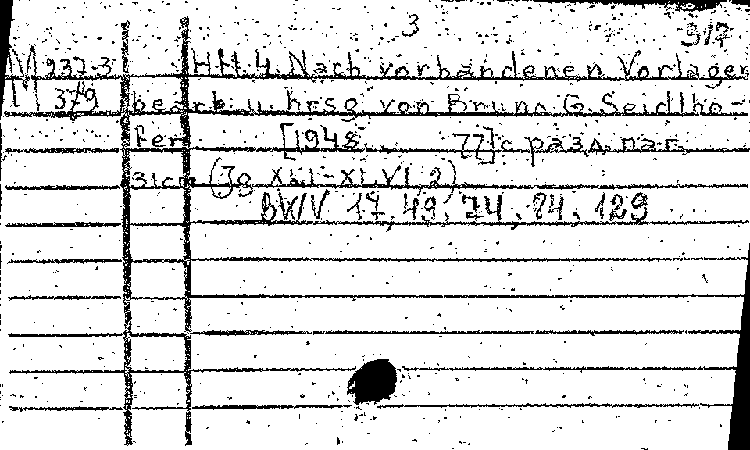 3 317
М 937-3 НН. 4. Nach vorhandenen Vorlagen
379 bearb. u. hrsg von Bruno G. Seidlho-
fer [194 77] с разд. паг.
31cm (Jg XLI-XLVI, 2)
BWV 17, 49, 74, 84, 129